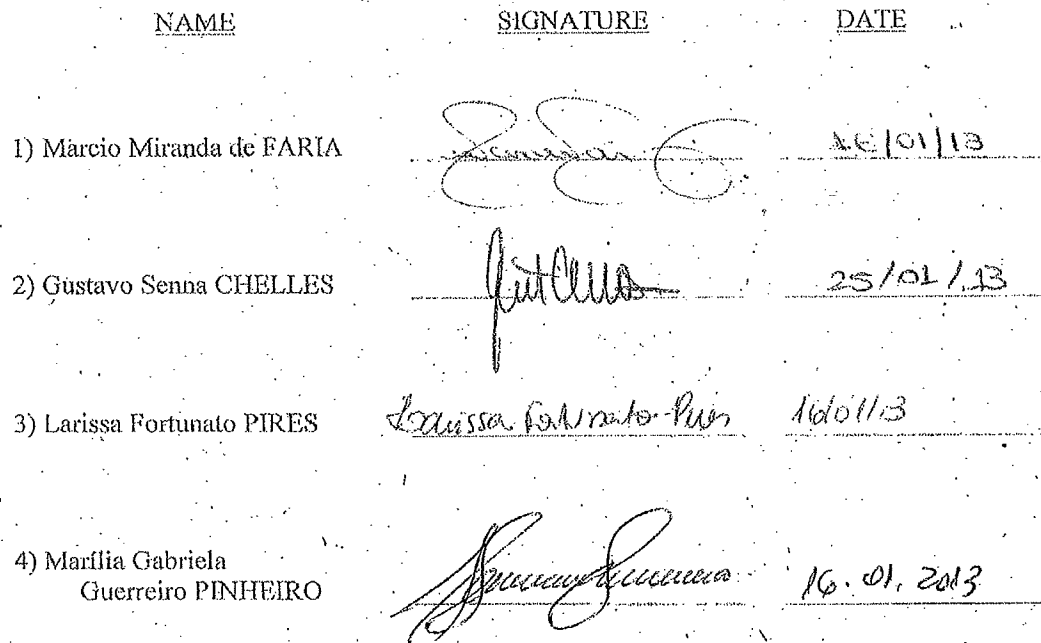 NAME SIGNATURE DATE
1) Marcio Miranda de FARIA 16/01/13
2) Gustavo Senna CHELLES 25/01/13
3) Larissa Fortunato PIRES Larissa Fortunato Pires 16/01/13
4) Marília Gabriela
Guerreiro PINHEIRO 16.01.2013